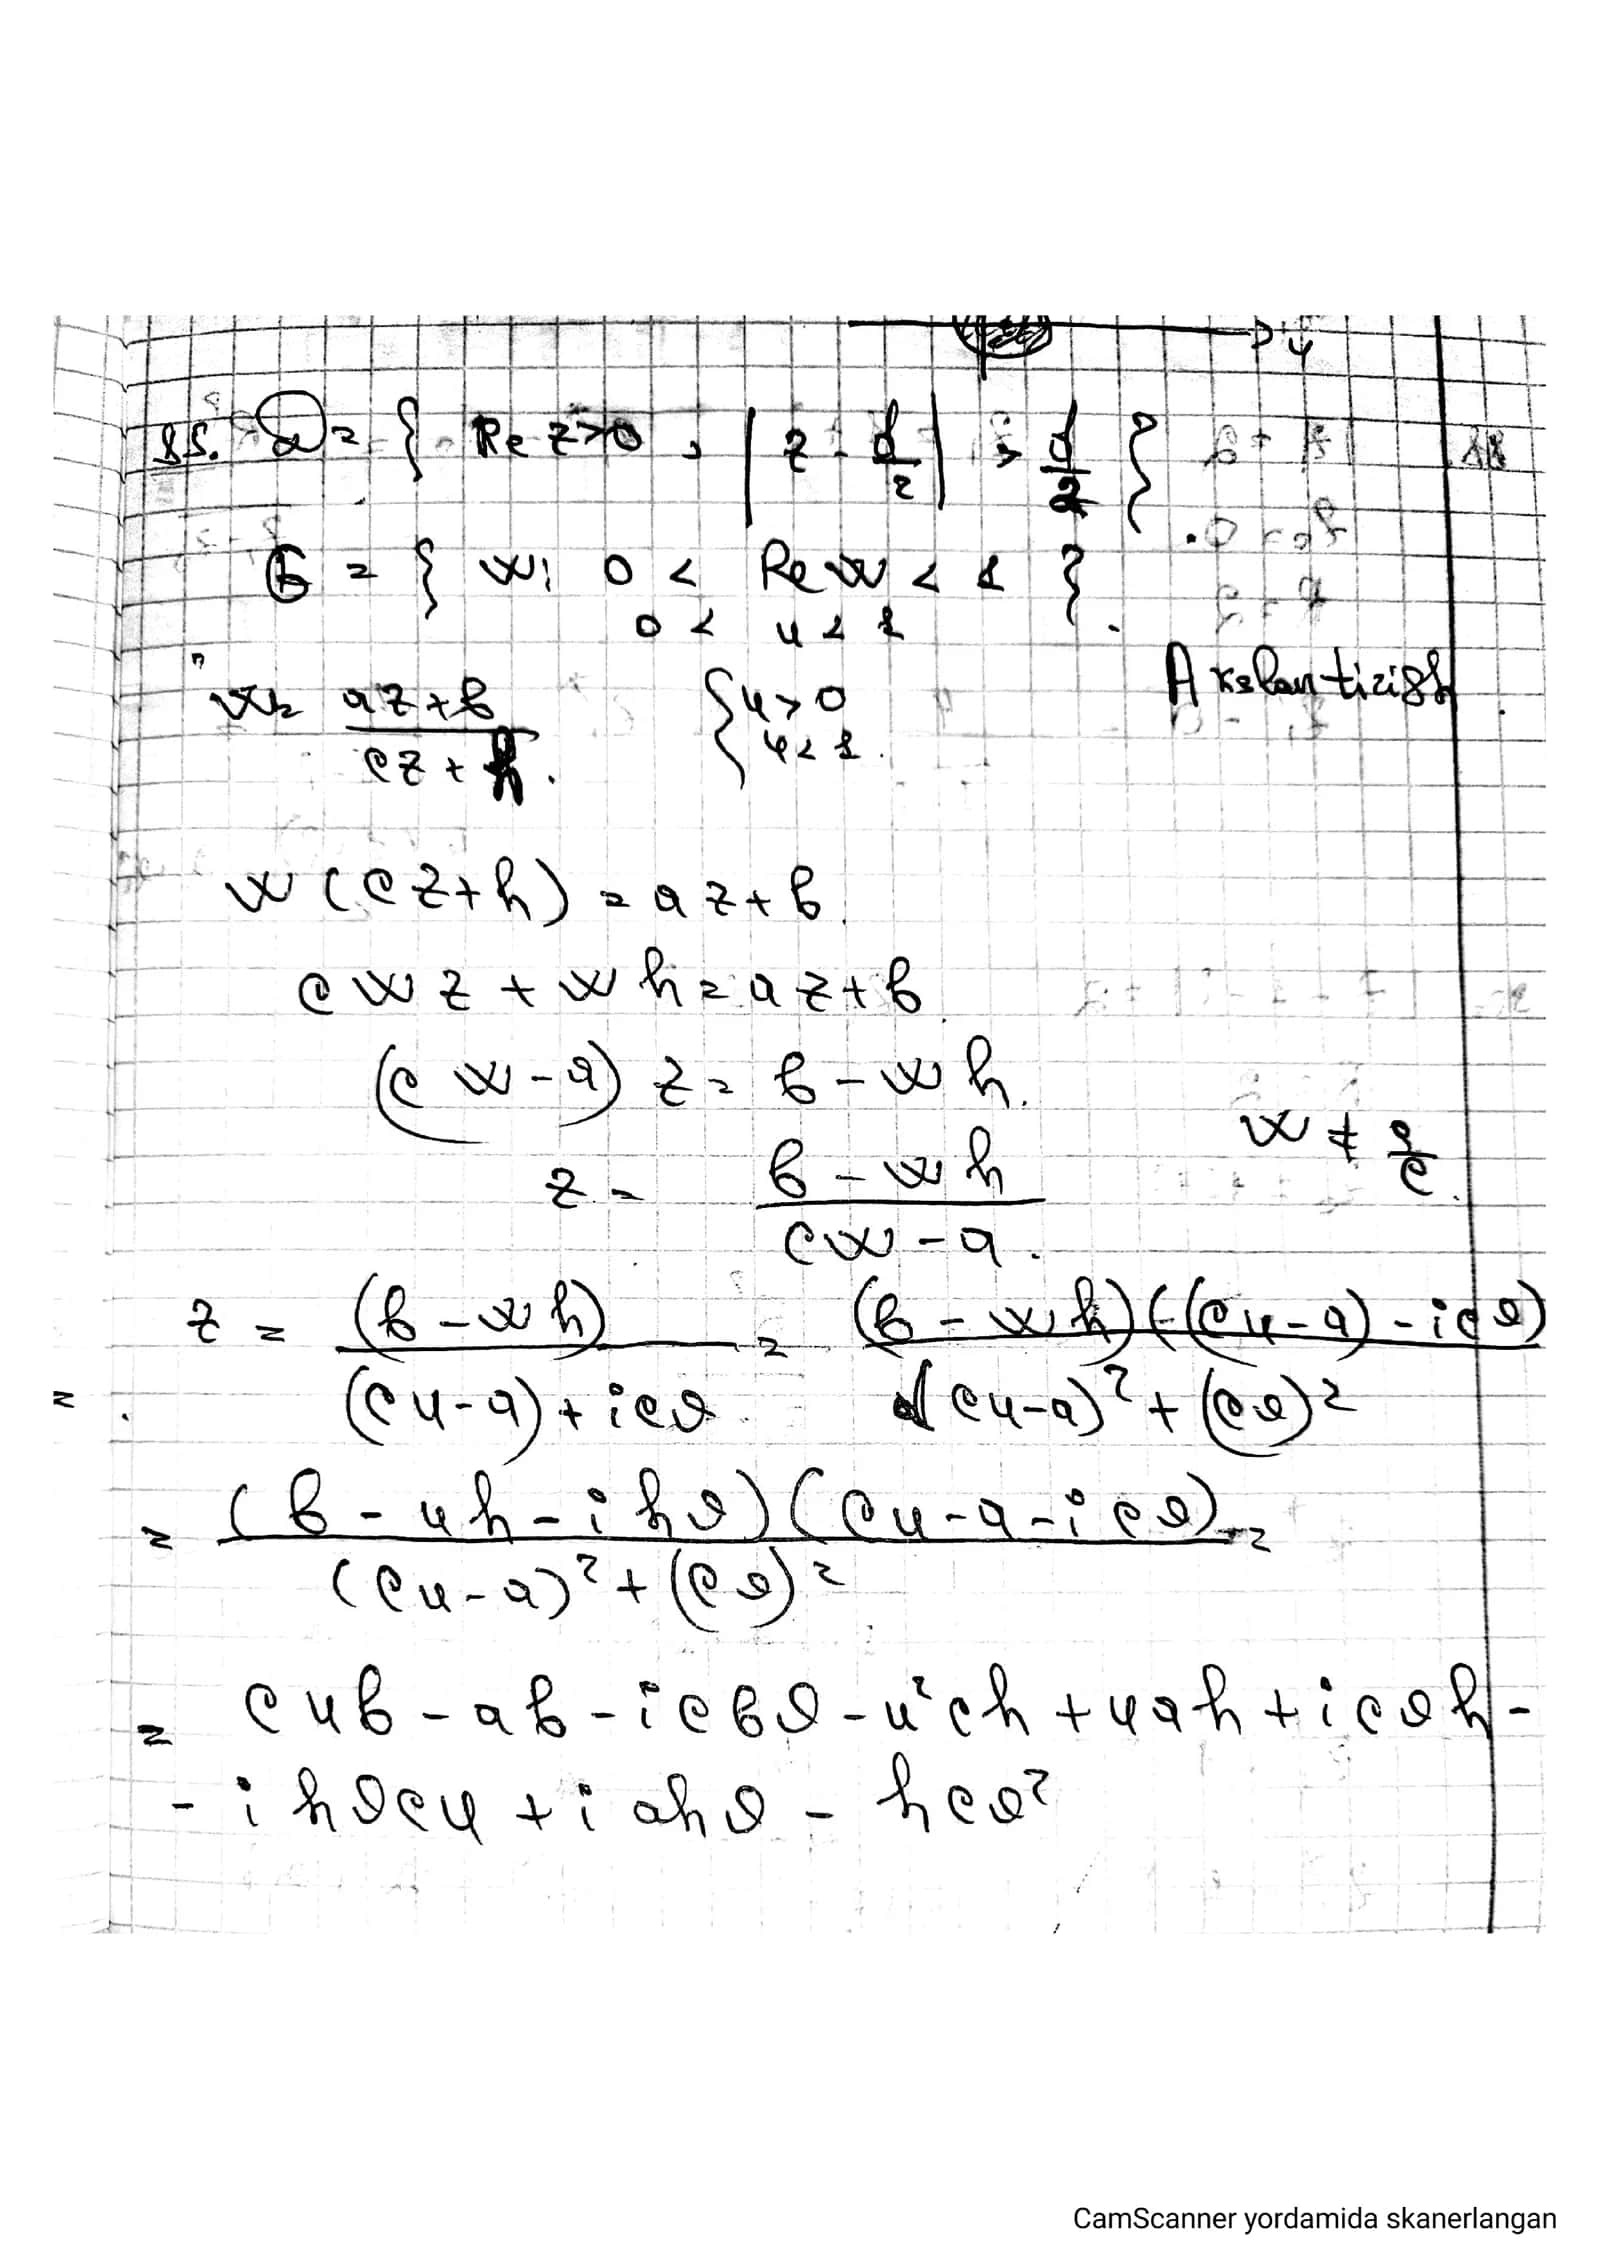 85. D = { Re z>0 , | z - d/2 | > d/2 }
G = { w: 0 < Re w < 1 }.
0 < u < 1
w = (az+b)/(cz+h). { u>0 u<1. Akslantirish.
w (cz+h) = az+b.
c w z + w h = a z + b.
(c w - a) z = b - w h.
z = (b - w h)/(cw - a). w ≠ a/c.
z = (b - w h)/((cu-a) + icv) = (b - w h)((cu-a) - icv)/((cu-a)² + (cv)²
= (b - uh - ihv)(cu-a-icv)/((cu-a)² + (cv)²) =
= cub - ab - icbv - u²ch + uah + icvh -
- ihvcu + iahv - hcv²
CamScanner yordamida skanerlangan